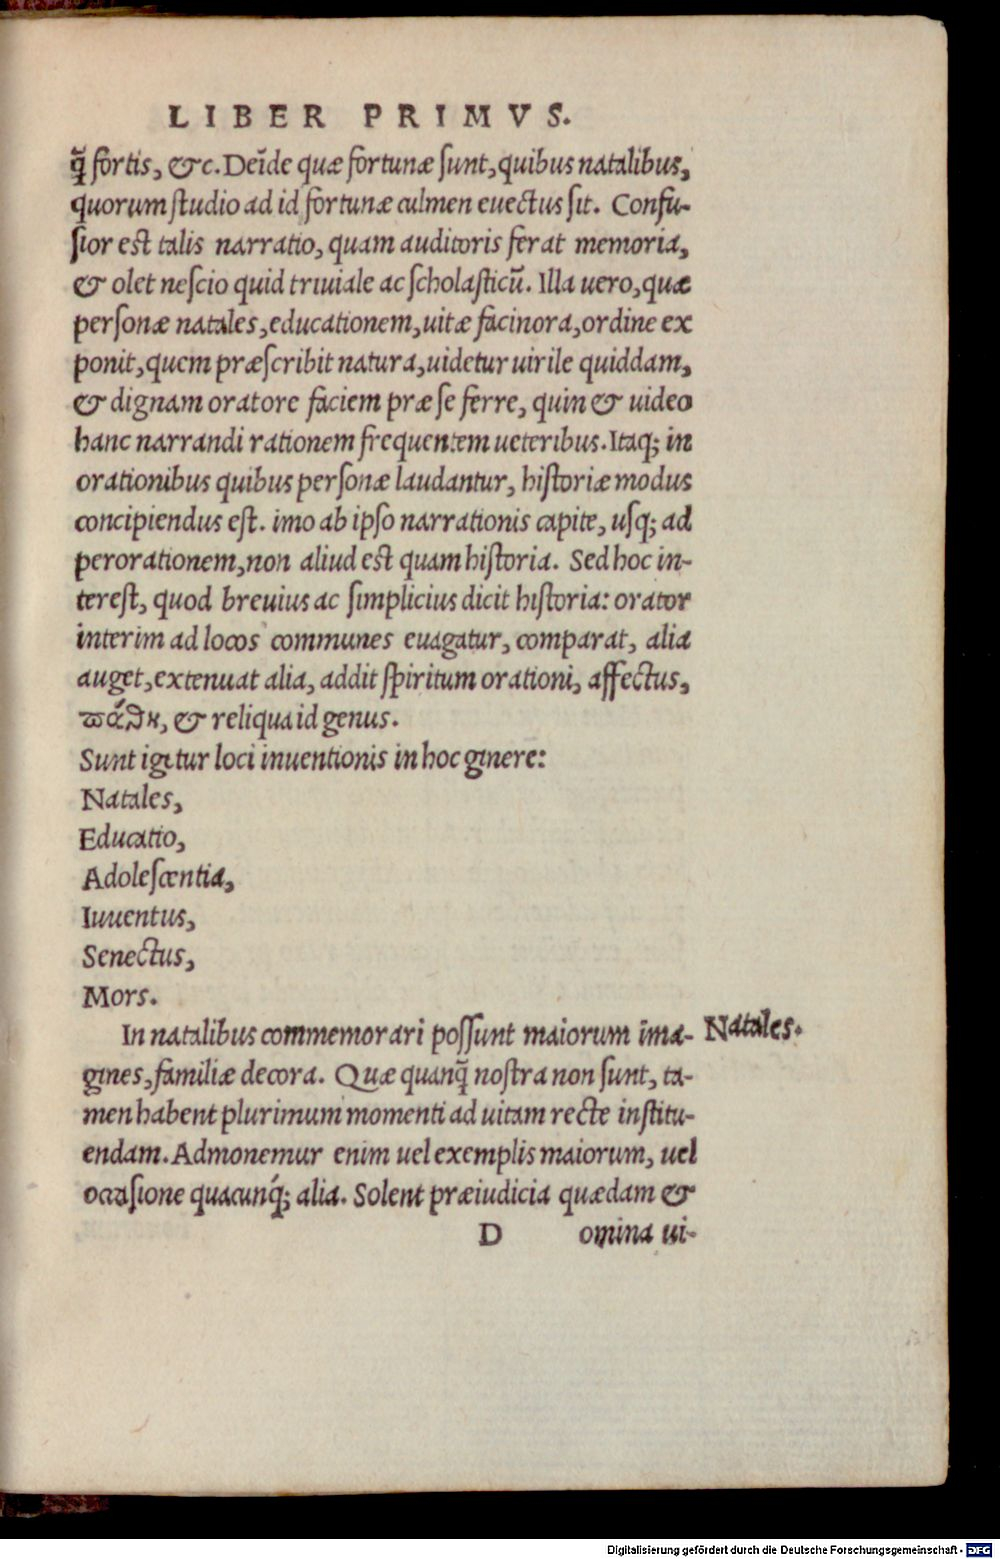 LIBER PRIMVS.
q̃ fortis, &c. Deīde quæ fortunæ sunt, quibus natalibus,
quorum studio ad id fortunæ culmen euectus sit. Confu-
sior est talis narratio, quam auditoris ferat memoria,
& olet nescio quid triuiale ac scholasticũ. Illa uero, quæ
personæ natales, educationem, uitæ facinora, ordine ex
ponit, quem præscribit natura, uidetur uirile quiddam,
& dignam oratore faciem præ se ferre, quin & uideo
hanc narrandi rationem frequentem ueteribus. Itaq; in
orationibus quibus personæ laudantur, historiæ modus
concipiendus est. imo ab ipso narrationis capite, usq; ad
perorationem, non aliud est quam historia. Sed hoc in-
terest, quod breuius ac simplicius dicit historia: orator
interim ad locos communes euagatur, comparat, alia
auget, extenuat alia, addit spiritum orationi, affectus,
πάθη, & reliqua id genus.
Sunt igitur loci inuentionis in hoc genere:
Natales,
Educatio,
Adolescentia,
Iuuentus,
Senectus,
Mors.
In natalibus commemorari possunt maiorum ima-
Natales.
gines, familiæ decora. Quæ quanq̃ nostra non sunt, ta-
men habent plurimum momenti ad uitam recte institu-
endam. Admonemur enim uel exemplis maiorum, uel
occasione quacunq́; alia. Solent præiudicia quædam &
D omina ui-
Digitalisierung gefördert durch die Deutsche Forschungsgemeinschaft - DFG